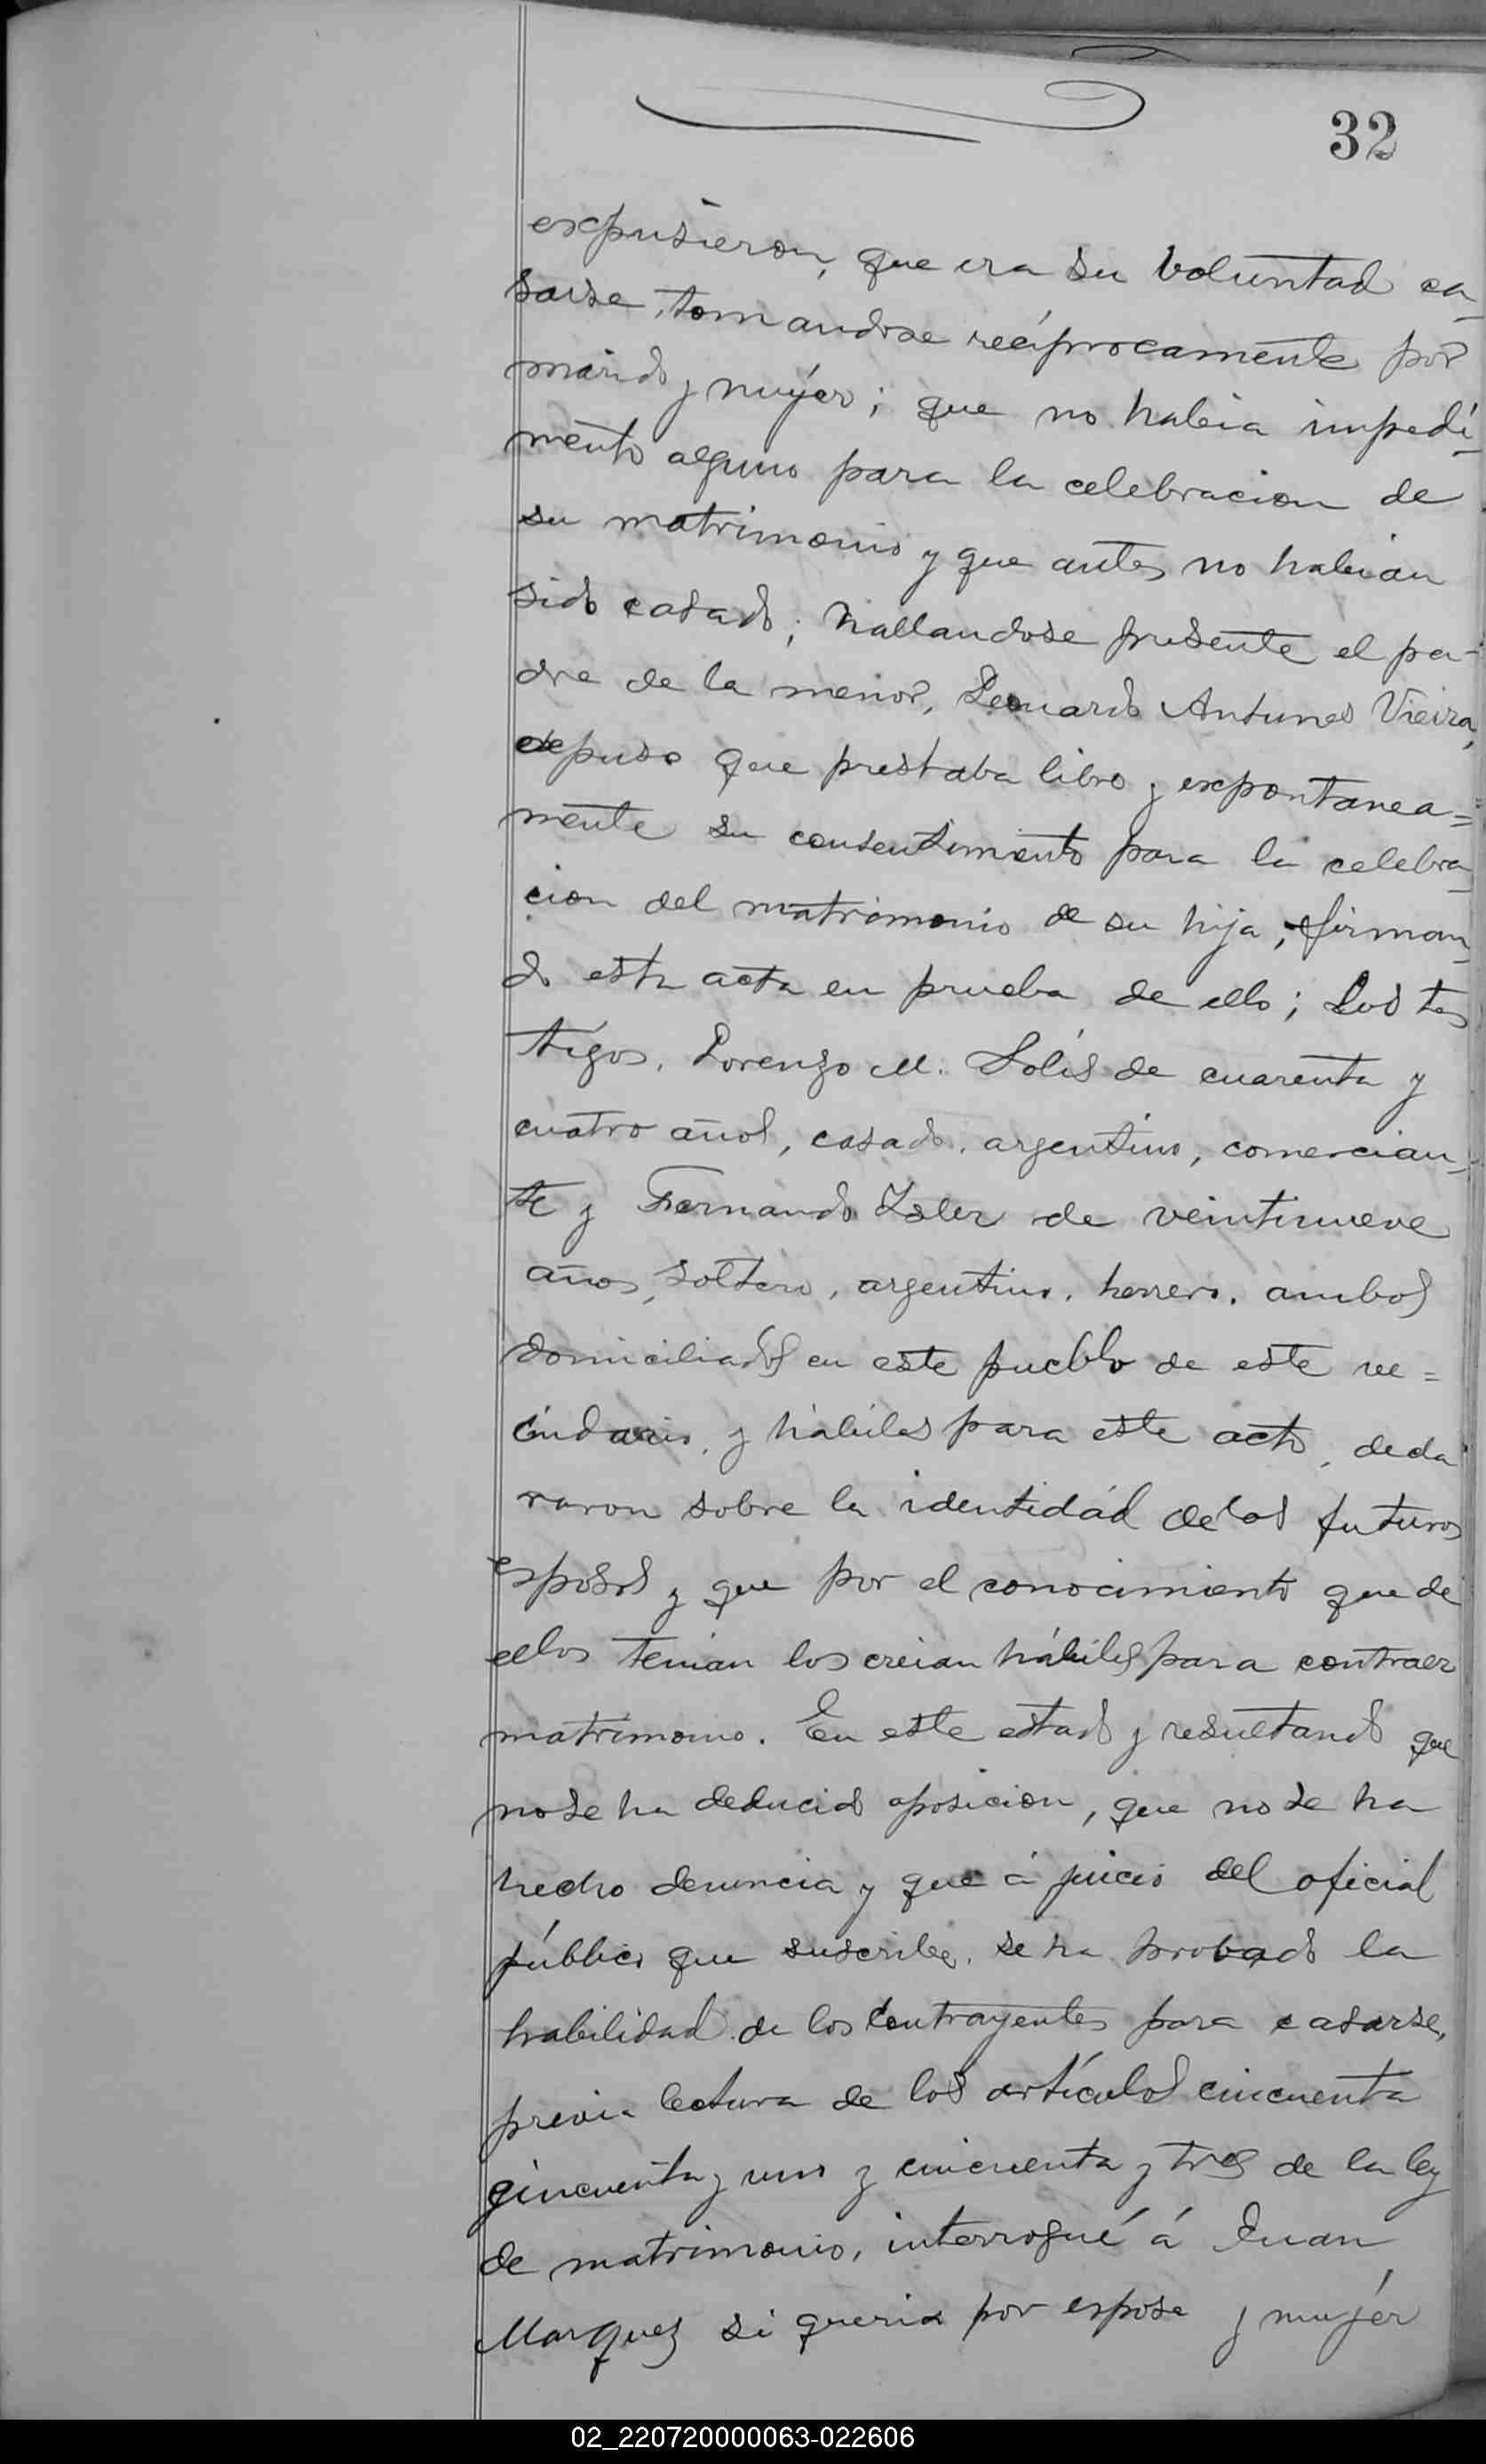 32
expusieron, que era su voluntad ca-
sarse, tomandose recíprocamente por
marido y mujer; que no habia impedi-
mento alguno para la celebracion de
su matrimonio y que antes no habian
sido casados; hallandose presente el pa-
dre de la menor, Leonardo Antunes Vieira,
expuso que prestaba libre y expontanea=
mente su consentimiento para la celebra-
cion del matrimonio de su hija, firman-
do esta acta en prueba de ello; Los tes
tigos, Lorenzo M. Solís de cuarenta y
cuatro años, casado, argentino, comercian-
te y Fernando Isler de veintinueve
años, soltero, argentino, herrero, ambos
domiciliados en este pueblo de este ve=
cindario, y hábiles para este acto, decla
raron sobre la identidád de los futuros
esposos y que por el conocimiento que de
ellos tenian los creian hábiles para contraer
matrimonio. En este estado y resultando que
no se ha deducido oposicion, que no se ha
hecho denuncia y que á juicio del oficial
público que suscribe, se ha probado la
habilidad de los contrayentes para casarse,
previa lectura de los artículos cincuenta
cincuenta y uno y cincuenta y tres de la ley
de matrimonio, interrogué á Juan
Marquez si queria por esposa y mujér
02_220720000063-022606